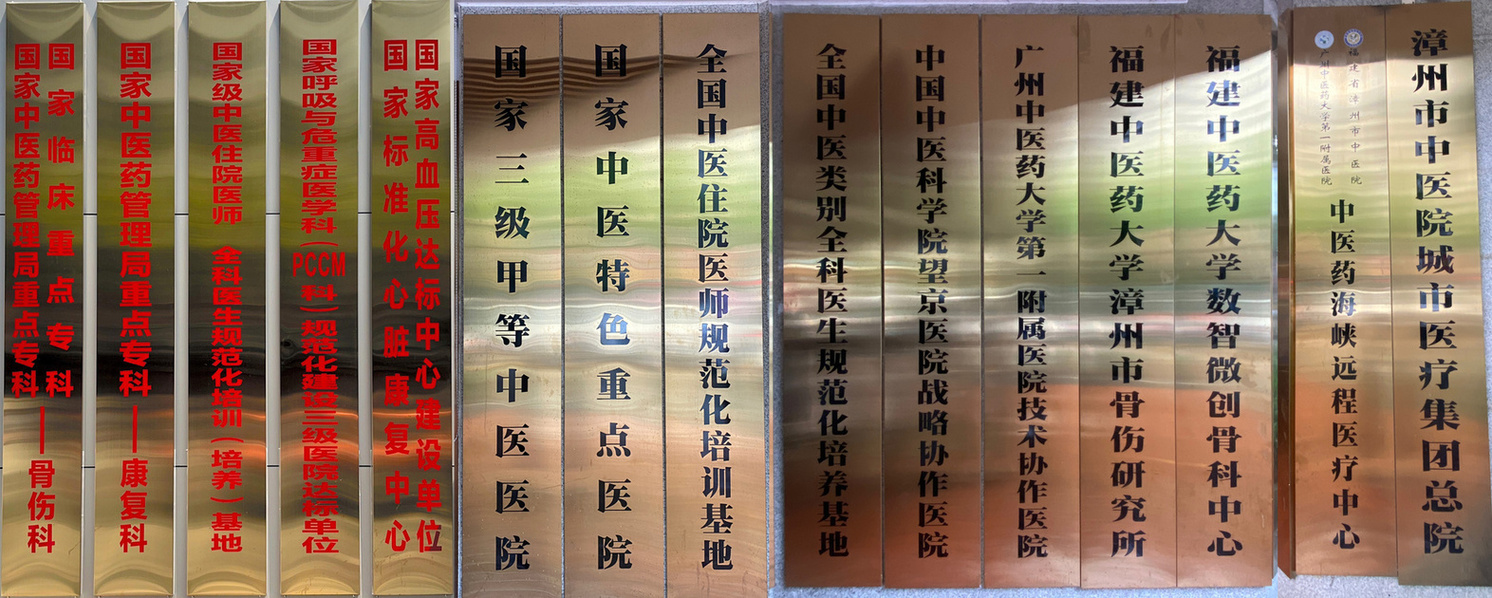 国家临床重点专科
国家中医药管理局重点专科——骨伤科
国家中医药管理局重点专科——康复科
国家级中医住院医师 全科医生规范化培训（培养）基地
国家呼吸与危重症医学科（PCCM科）规范化建设三级医院达标单位
国家高血压达标中心建设单位
国家标准化心脏康复中心
国家三级甲等中医医院
国家中医特色重点医院
全国中医住院医师规范化培训基地
全国中医类别全科医生规范化培养基地
中国中医科学院望京医院战略协作医院
广州中医药大学第一附属医院技术协作医院
福建中医药大学漳州市骨伤研究所
福建中医药大学数智微创骨科中心
福建省漳州市中医院
广州中医药大学第一附属医院
中医药海峡远程医疗中心
漳州市中医院城市医疗集团总院